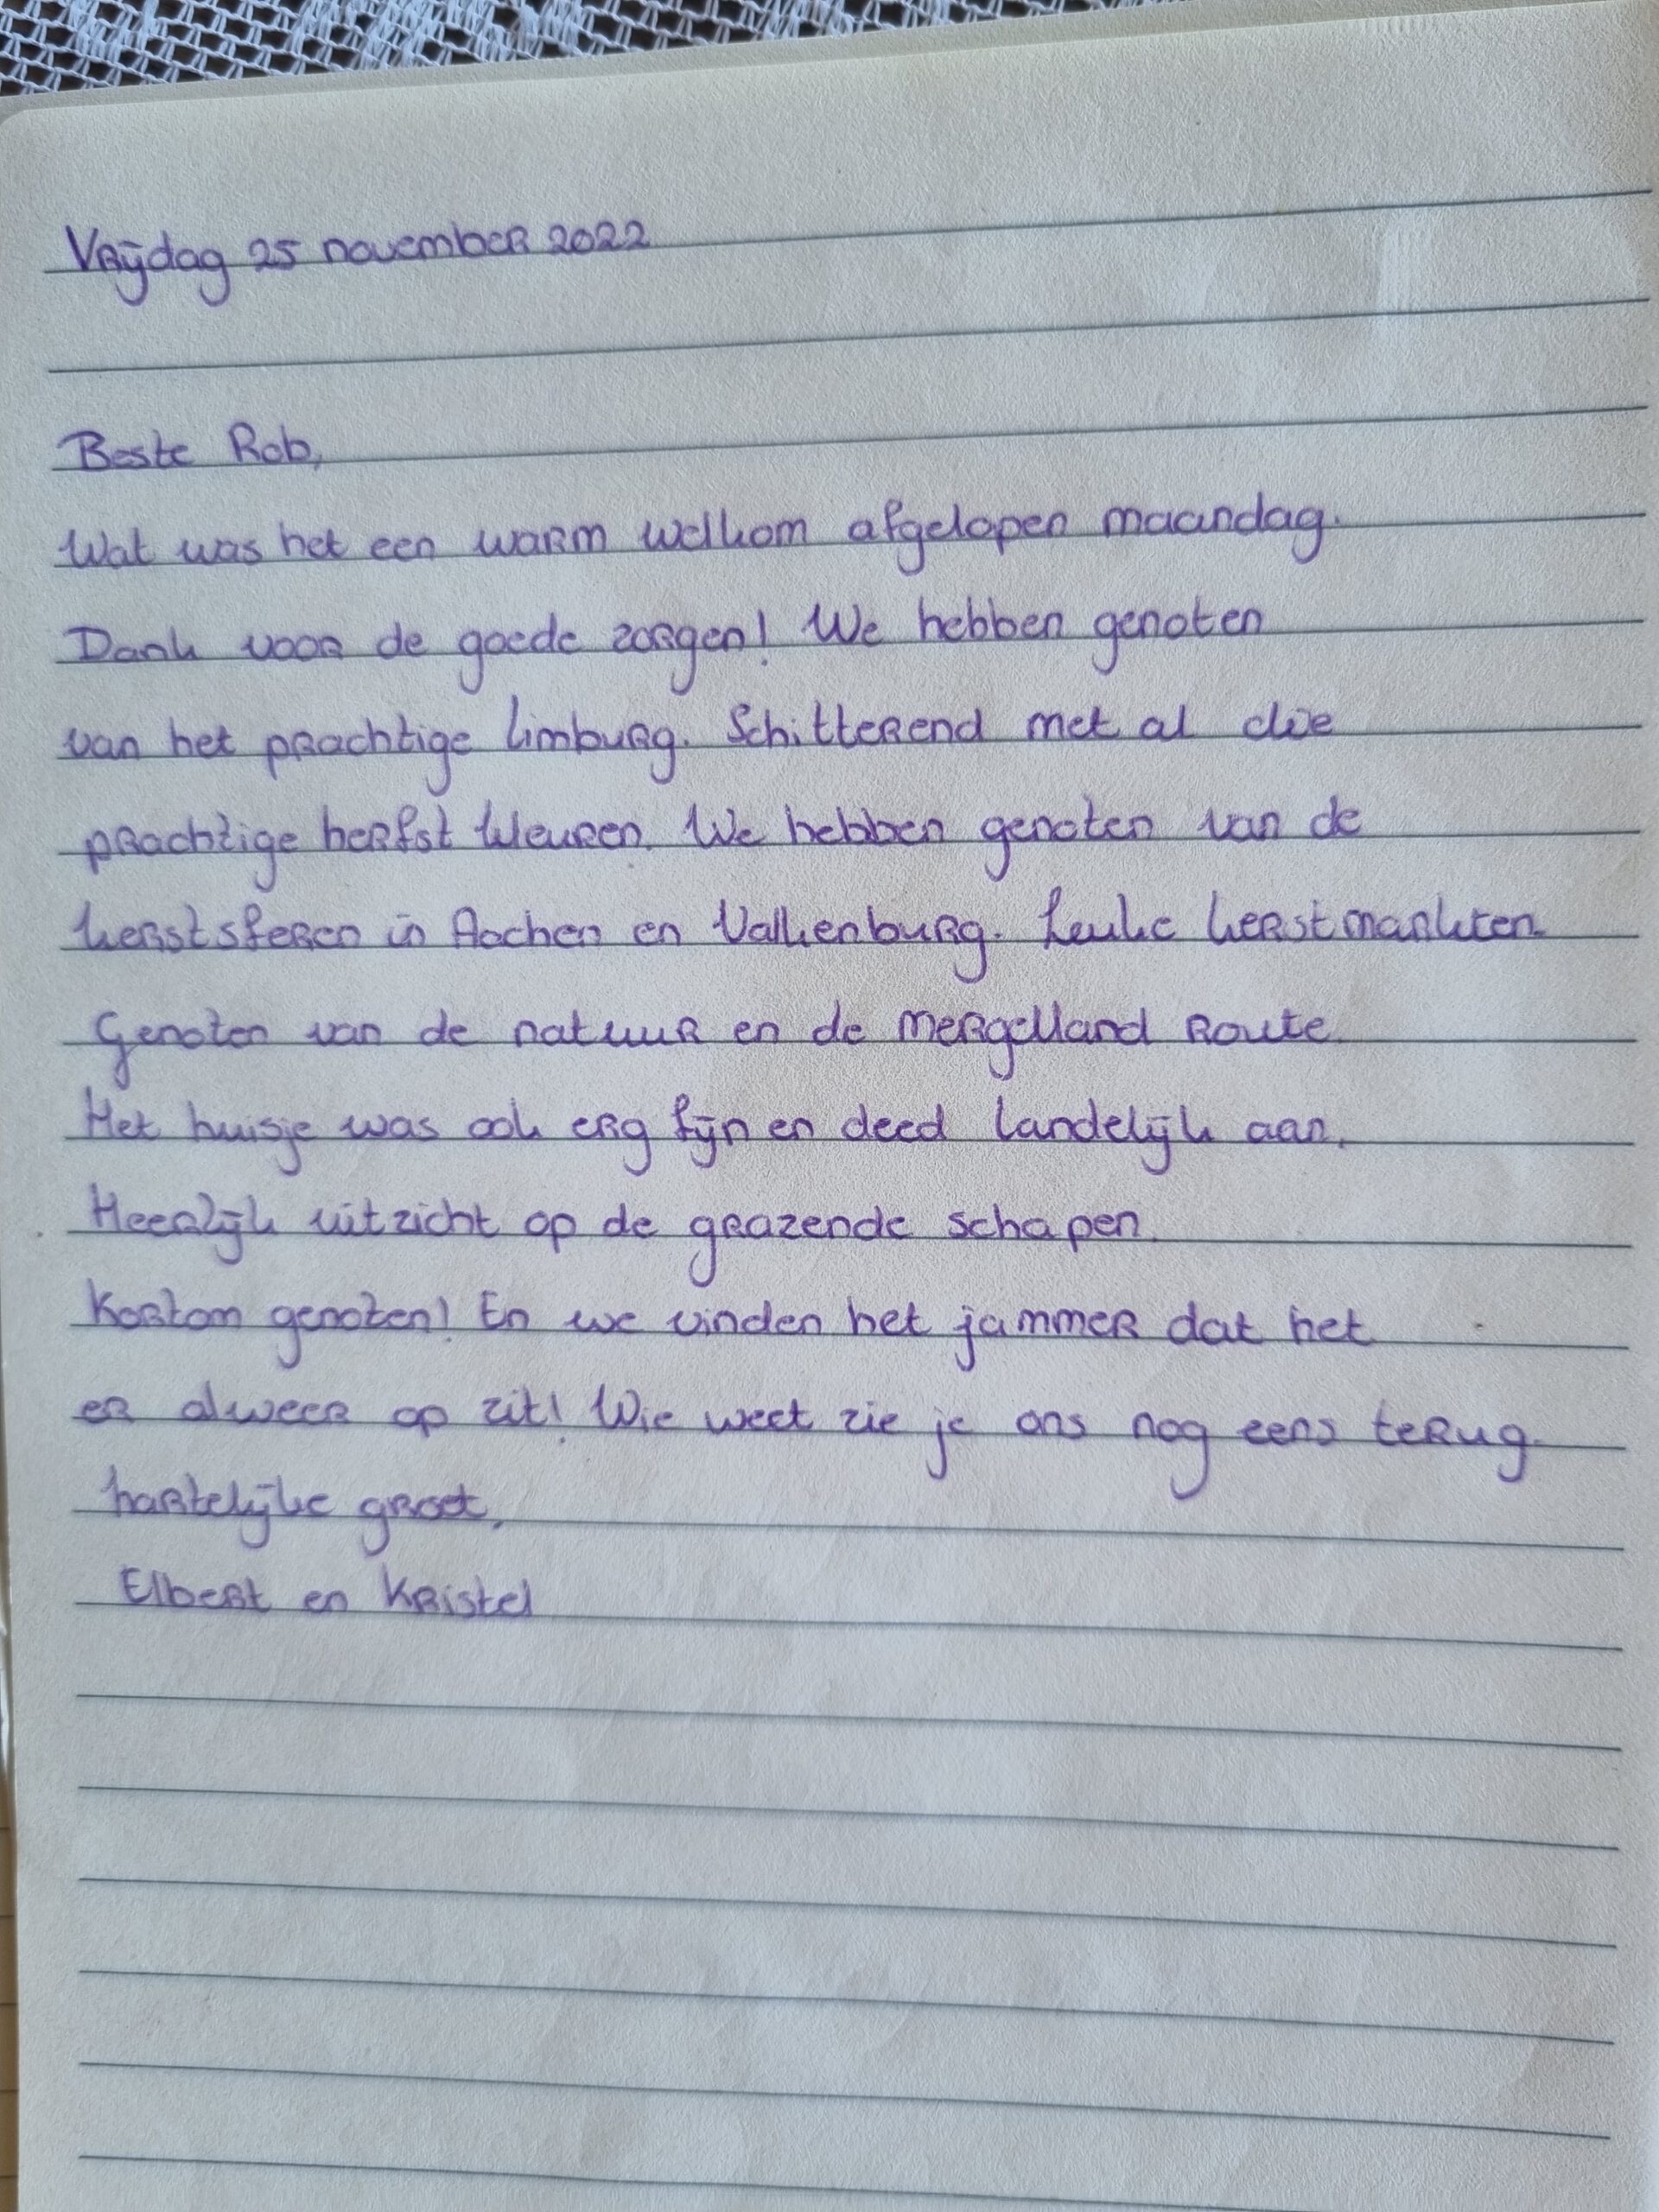 Vrijdag 25 november 2022
Beste Rob,
Wat was het een warm welkom afgelopen maandag.
Dank voor de goede zorgen! We hebben genoten
van het prachtige limburg. Schitterend met al die
prachtige herfst kleuren. We hebben genoten van de
kerstsferen in Aachen en Valkenburg. Leuke kerstmarkten.
Genoten van de natuur en de mergelland Route.
Het huisje was ook erg fijn en deed landelijk aan.
Heerlijk uitzicht op de grazende schapen.
Kortom genoten! En we vinden het jammer dat het
er alweer op zit! Wie weet zie je ons nog eens terug.
hartelijke groet,
Elbert en Kristel